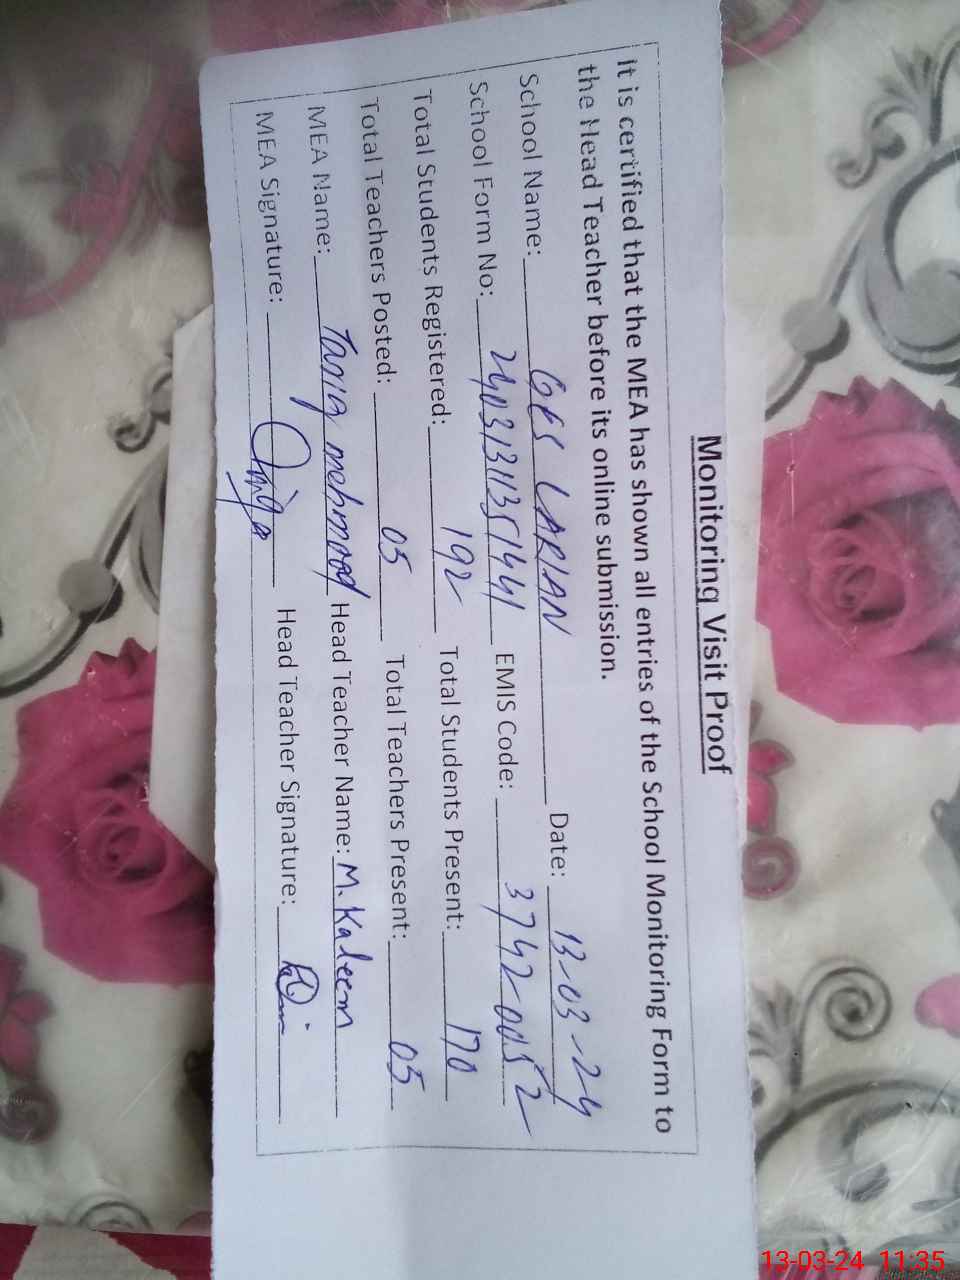 Monitoring Visit Proof
It is certified that the MEA has shown all entries of the School Monitoring Form to
the Head Teacher before its online submission.
School Name: GES LARIAN Date: 13-03-24
School Form No: EMIS Code: 3742-0052
Total Students Registered: 192 Total Students Present: 170
Total Teachers Posted: 05 Total Teachers Present: 05
MEA Name: Tariq mehmood Head Teacher Name: M. Kaleem
MEA Signature: Head Teacher Signature:
13-03-24 11:35